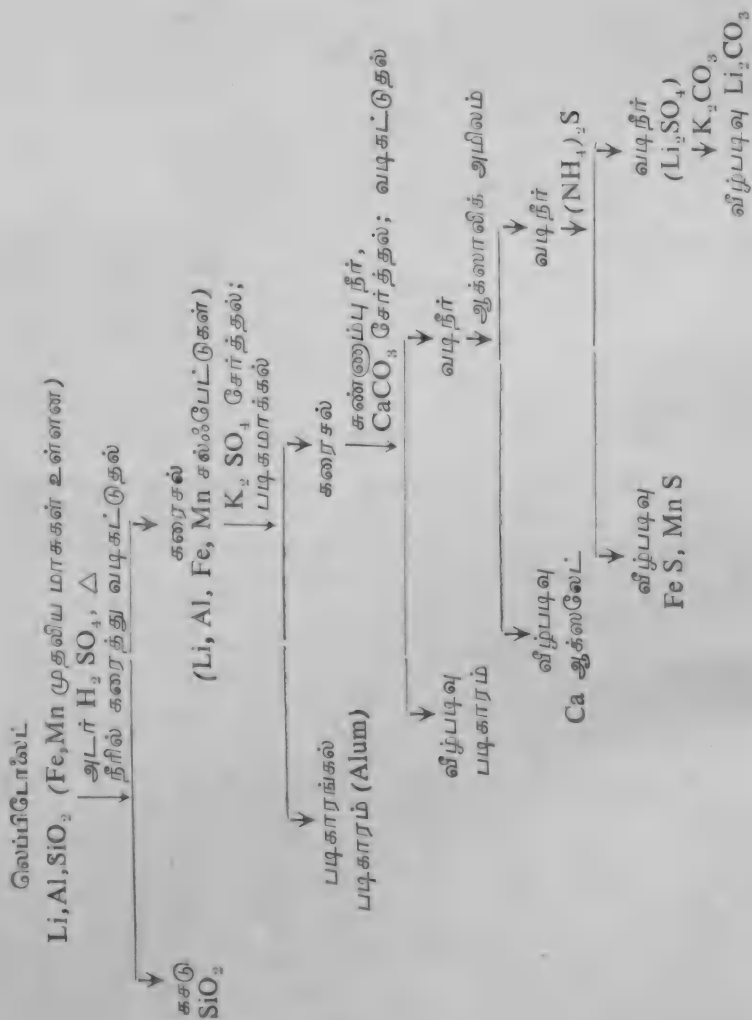 லெப்பிடோலைட்
Li,Al,SiO₂ (Fe,Mn முதலிய மாசுகள் உள்ளன)
அடர் H₂ SO₄, △
நீரில் கரைத்து வடிகட்டுதல்
கசடு
SiO₂
கரைசல்
(Li, Al, Fe, Mn சல்ஃபேட்டுகள்)
K₂ SO₄ சேர்த்தல்;
படிகமாக்கல்
படிகாரங்கல்
படிகாரம் (Alum)
கரைசல்
சுண்ணாம்பு நீர்,
CaCO₃ சேர்த்தல்; வடிகட்டுதல்
வீழ்படிவு
படிகாரம்
வடிநீர்
ஆக்ஸாலிக் அமிலம்
வீழ்படிவு
Ca ஆக்ஸலேட்
வடிநீர்
(NH₄)₂S
வீழ்படிவு
Fe S, Mn S
வடிநீர்
(Li₂SO₄)
K₂CO₃
வீழ்படிவு Li₂CO₃